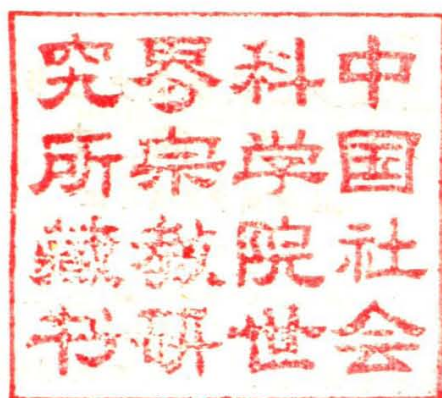 中国社会
科学院世
界宗教研
究所藏书